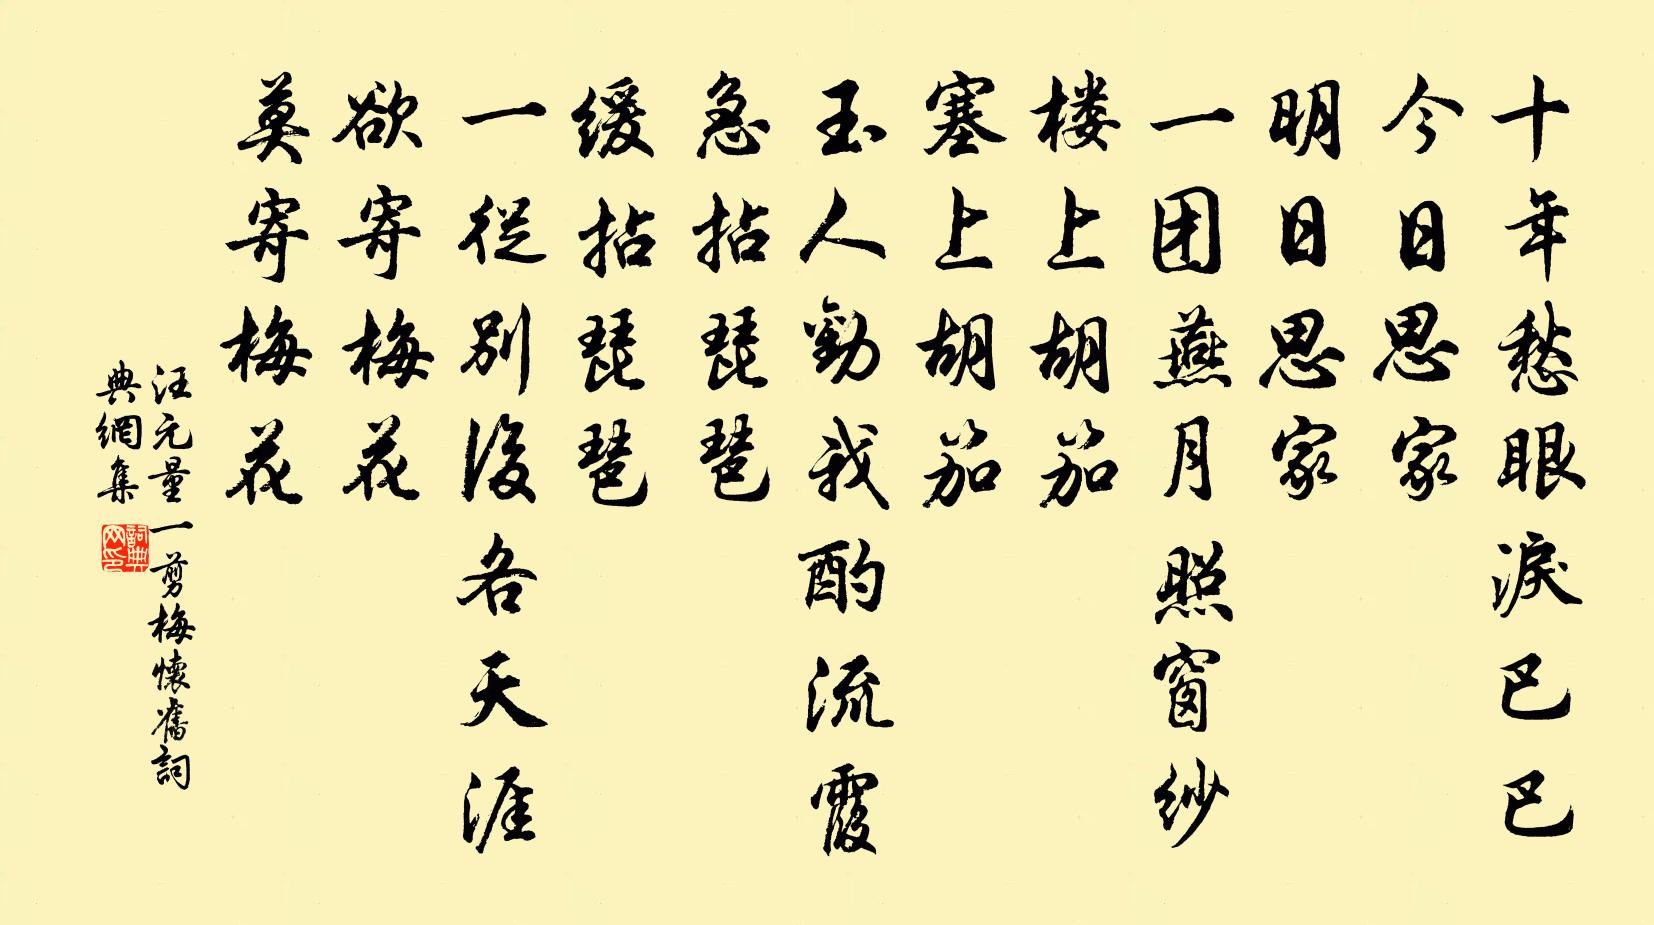 十年愁眼淚巴巴
今日思家
明日思家
一团燕月照窗纱
楼上胡笳
塞上胡笳
玉人勸我酌流霞
急拈琵琶
缓拈琵琶
一從别後各天涯
欲寄梅花
莫寄梅花
汪元量一剪梅懷舊詞
典網集
詞典網印